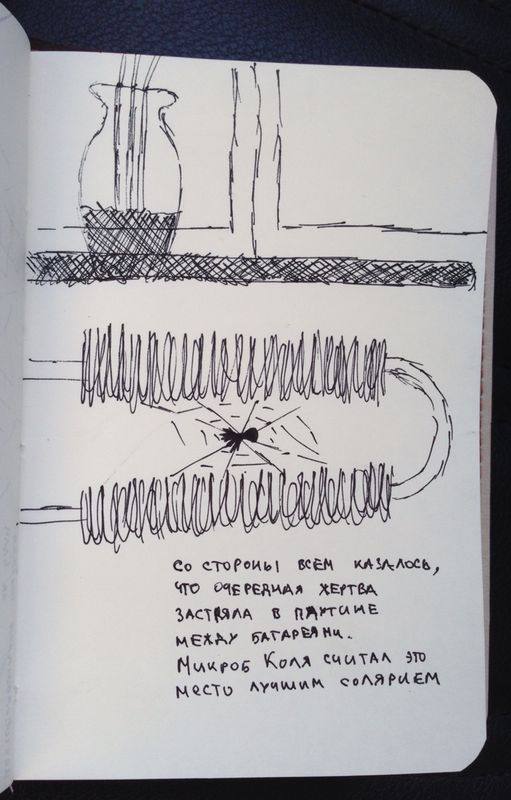 СО СТОРОНЫ ВСЕМ КАЗАЛОСЬ,
ЧТО ОЧЕРЕДНАЯ ЖЕРТВА
ЗАСТРЯЛА В ПАУТИНЕ
МЕЖДУ БАТАРЕЯМИ.
МИКРОБ КОЛЯ СЧИТАЛ ЭТО
МЕСТО ЛУЧШИМ СОЛЯРИЕМ